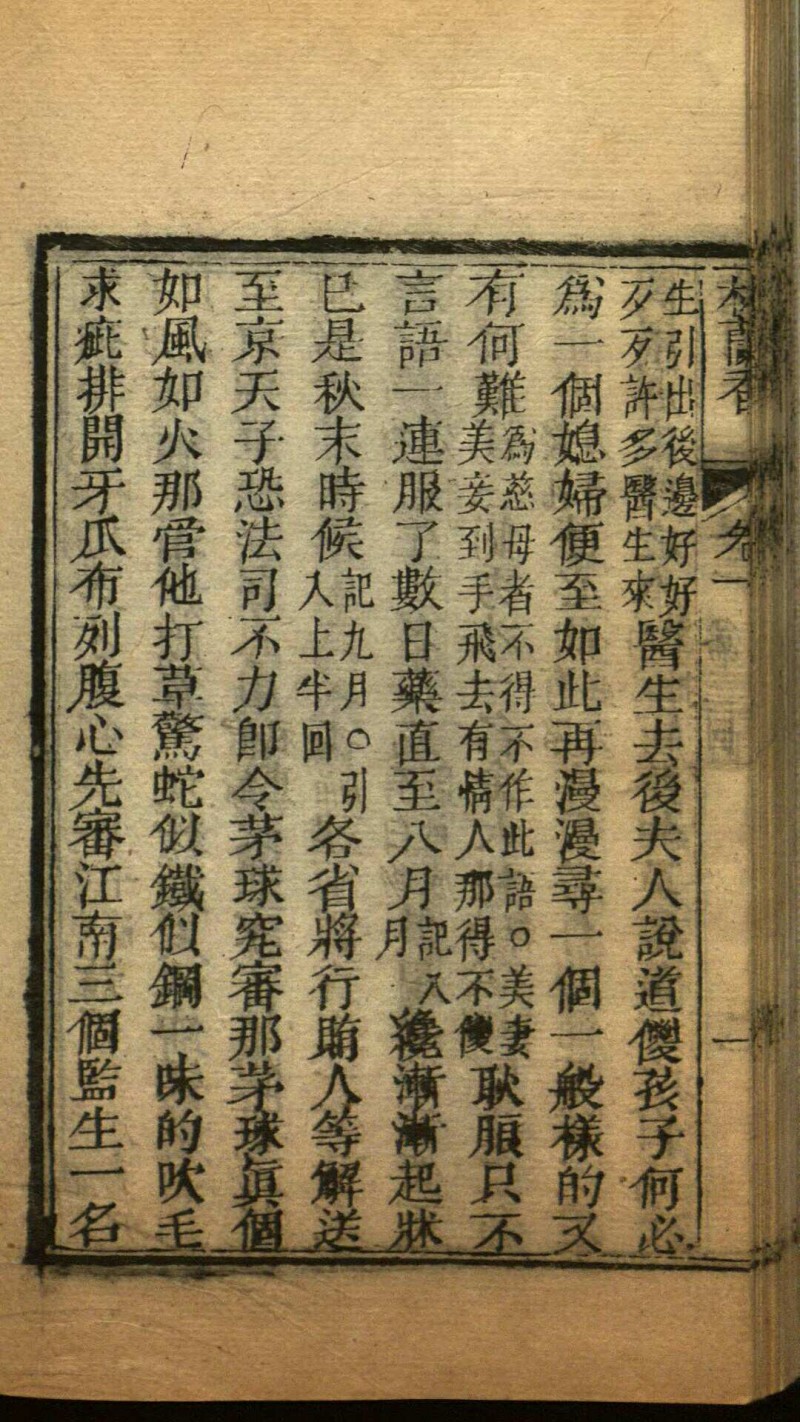 生引出後邊好好
歹歹許多醫生來
醫生去後夫人說道傻孩子何必
爲一個媳婦便至如此再漫漫尋一個一般樣的又
有何難
爲慈母者不得不作此語○美妻
美妾到手飛去有情人那得不傻
耿朖只不
言語一連服了數日藥直至八月
記八
月
纔漸漸起牀
已是秋末時候
記九月○引
入上半回
各省將行賄人等解送
至京天子恐法司不力卽令茅球究審那茅球眞個
如風如火那管他打草驚蛇似鐵似鋼一味的吹毛
求疵排開牙爪布列腹心先審江南三個監生一名